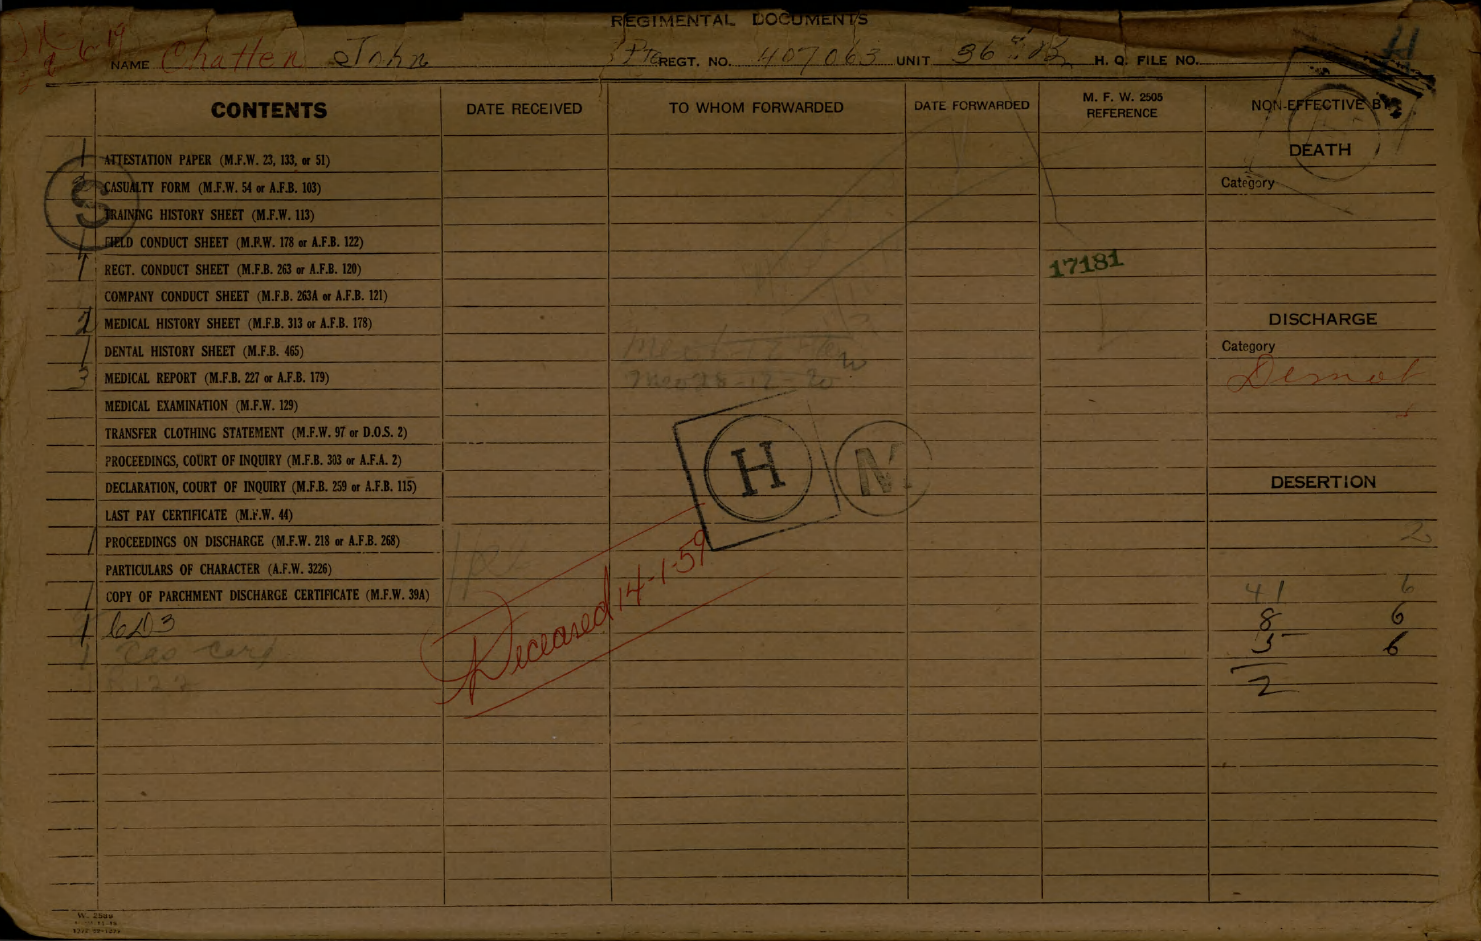 REGIMENTAL DOCUMENTS
NAME Chatten John Pte REGT. NO. 407063 UNIT 36th Bn H. Q. FILE NO.
CONTENTS DATE RECEIVED TO WHOM FORWARDED DATE FORWARDED M. F. W. 2505 REFERENCE NON-EFFECTIVE BY
DEATH
1 ATTESTATION PAPER (M.F.W. 23, 133, or 51)
Category
CASUALTY FORM (M.F.W. 54 or A.F.B. 103)
S
TRAINING HISTORY SHEET (M.F.W. 113)
1 FIELD CONDUCT SHEET (M.F.W. 178 or A.F.B. 122)
1 REGT. CONDUCT SHEET (M.F.B. 263 or A.F.B. 120) 17181
COMPANY CONDUCT SHEET (M.F.B. 263A or A.F.B. 121)
DISCHARGE
2 MEDICAL HISTORY SHEET (M.F.B. 313 or A.F.B. 178)
Category
1 DENTAL HISTORY SHEET (M.F.B. 465)
3 MEDICAL REPORT (M.F.B. 227 or A.F.B. 179) 28-12-20 Demob
MEDICAL EXAMINATION (M.F.W. 129)
TRANSFER CLOTHING STATEMENT (M.F.W. 97 or D.O.S. 2)
PROCEEDINGS, COURT OF INQUIRY (M.F.B. 303 or A.F.A. 2)
H M
DECLARATION, COURT OF INQUIRY (M.F.B. 259 or A.F.B. 115) DESERTION
LAST PAY CERTIFICATE (M.F.W. 44)
2
1 PROCEEDINGS ON DISCHARGE (M.F.W. 218 or A.F.B. 268)
PARTICULARS OF CHARACTER (A.F.W. 3226)
1 COPY OF PARCHMENT DISCHARGE CERTIFICATE (M.F.W. 39A) 41 6
Deceased 14-1-59
1 6D3 8 6
1 Cas card 5 6
2
W. 2500